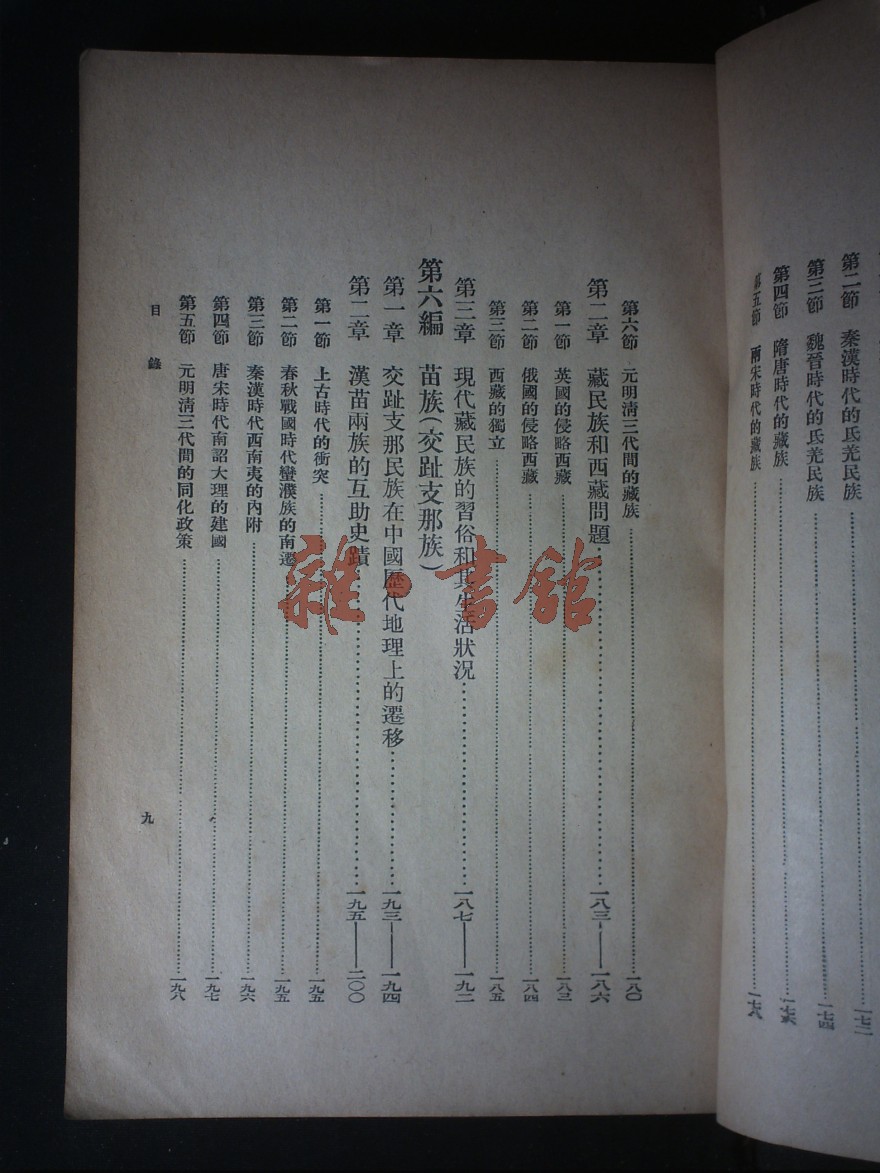 第二節　秦漢時代的氐羌民族……一七二
第三節　魏晉時代的氐羌民族……一七四
第四節　隋唐時代的藏族……一七六
第五節　兩宋時代的藏族……一七八
第六節　元明清三代間的藏族……一八〇
第二章　藏民族和西藏問題……一八三——一八六
第一節　英國的侵略西藏……一八三
第二節　俄國的侵略西藏……一八四
第三節　西藏的獨立……一八五
第三章　現代藏民族的習俗和其生活狀况……一八七——一九二
第六編　苗族(交趾支那族)
第一章　交趾支那民族在中國歷代地理上的遷移……一九三——一九四
第二章　漢苗兩族的互助史蹟……一九五——二〇〇
第一節　上古時代的衝突……一九五
第二節　春秋戰國時代蠻濮族的南遷……一九五
第三節　秦漢時代西南夷的內附……一九六
第四節　唐宋時代南詔大理的建國……一九七
第五節　元明清三代間的同化政策……一九八
目錄
九
雜·書館